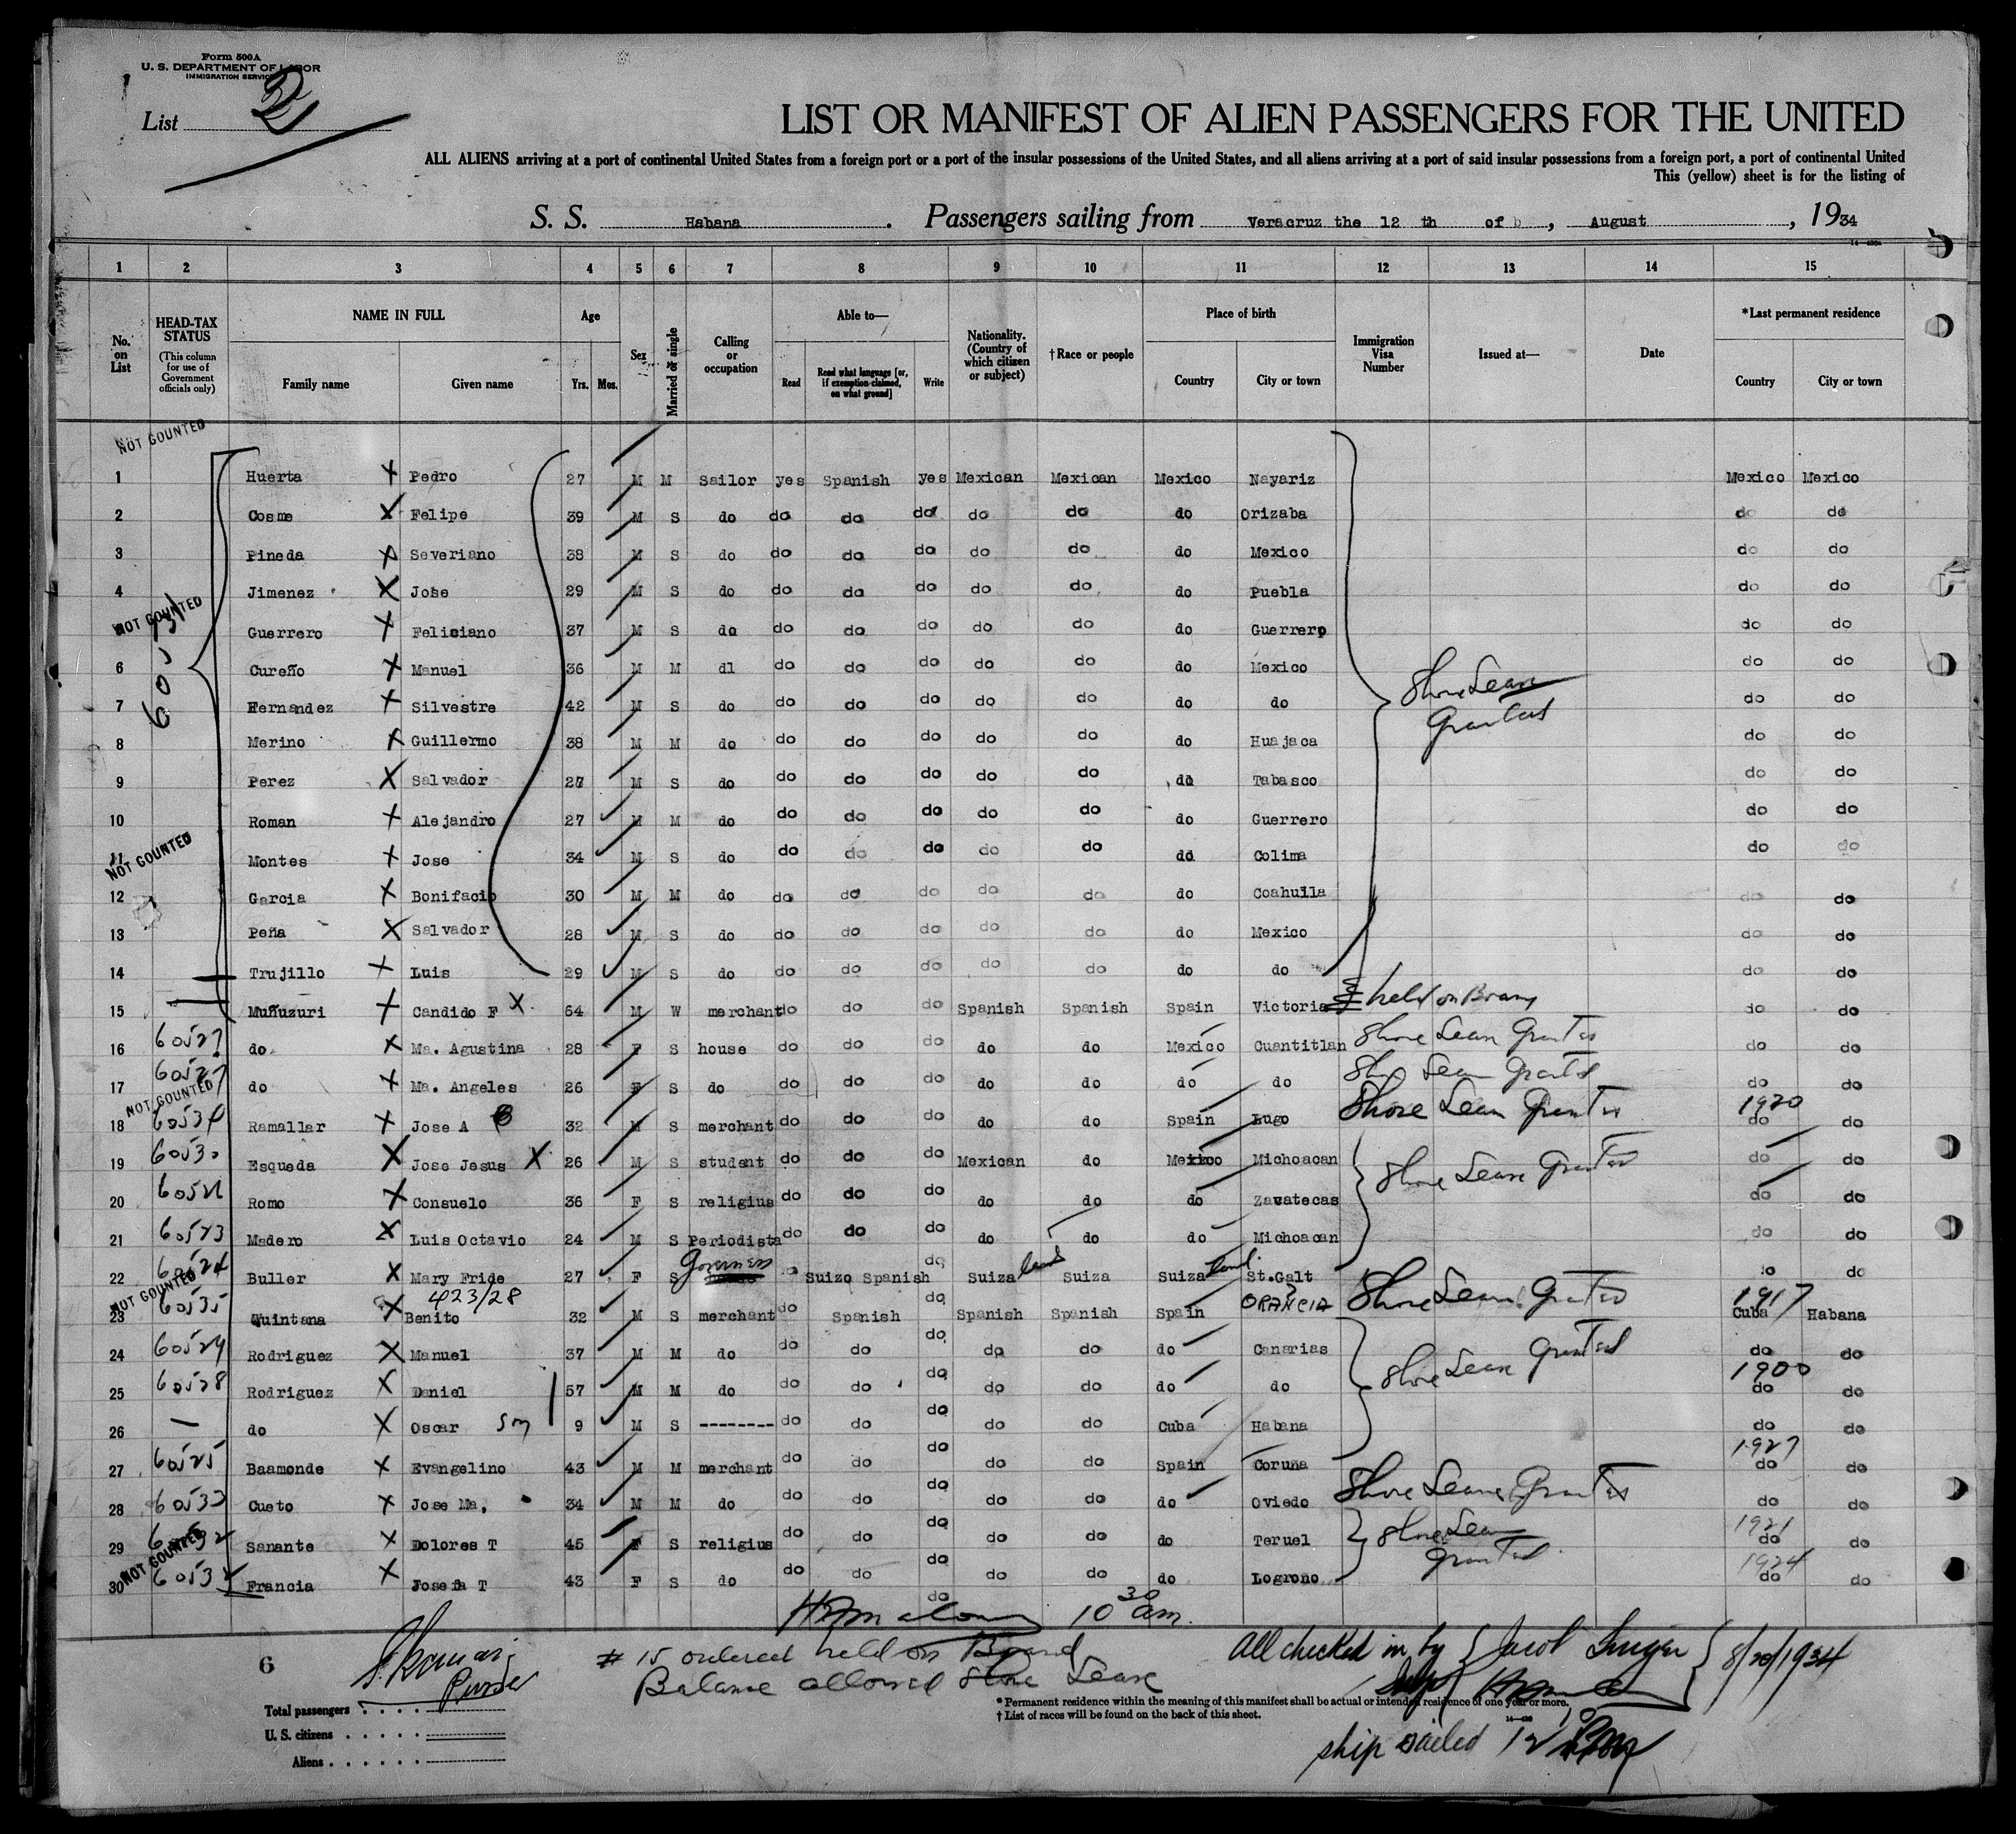 Form 500A
U. S. DEPARTMENT OF LABOR
IMMIGRATION SERVICE
List 2
LIST OR MANIFEST OF ALIEN PASSENGERS FOR THE UNITED
ALL ALIENS arriving at a port of continental United States from a foreign port or a port of the insular possessions of the United States, and all aliens arriving at a port of said insular possessions from a foreign port, a port of continental United
This (yellow) sheet is for the listing of
S. S. Habana. Passengers sailing from Veracruz the 12 th of, August, 1934
1 2 3 4 5 6 7 8 9 10 11 12 13 14 15
No. on List
HEAD-TAX STATUS
(This column for use of Government officials only)
NAME IN FULL
Family name Given name
Age
Yrs. Mos.
Sex
Married or single
Calling or occupation
Able to—
Read
Read what language [or, if exemption claimed, on what ground]
Write
Nationality. (Country of which citizen or subject)
†Race or people
Place of birth
Country City or town
Immigration Visa Number
Issued at—
Date
*Last permanent residence
Country City or town
NOT COUNTED
1 Huerta X Pedro 27 M M Sailor yes Spanish yes Mexican Mexican Mexico Nayariz Mexico Mexico
2 Cosme X Felipe 39 M S do do do do do do do Orizaba do do
3 Pineda X Severiano 38 M S do do do do do do do Mexico do do
4 Jimenez X Jose 29 M S do do do do do do do Puebla do do
NOT COUNTED
Guerrero X Feliciano 37 M S do do do do do do do Guerrero do do
6 Cureño X Manuel 36 M M dl do do do do do do Mexico do do
Shore Leave
7 Fernandez X Silvestre 42 M S do do do do do do do do do do
Granted
8 Merino X Guillermo 38 M M do do do do do do do Huajaca do do
9 Perez X Salvador 27 M S do do do do do do do Tabasco do do
10 Roman X Alejandro 27 M M do do do do do do do Guerrero do do
11 Montes X Jose 34 M S do do do do do do do Colima do do
NOT COUNTED
12 Garcia X Bonifacio 30 M M do do do do do do do Coahuila do do
13 Peña X Salvador 28 M S do do do do do do do Mexico do do
14 Trujillo X Luis 29 M S do do do do do do do do do do
15 Muñuzuri X Candido F X 64 M W merchant do do do Spanish Spanish Spain Victoria held on Board do do
16 60527 do X Ma. Agustina 28 F S house do do do do do Mexico Cuantitlan Shore Leave Granted do do
17 60527 do X Ma. Angeles 26 F S do do do do do do do do Shore Leave Granted do do
NOT COUNTED
18 60534 Ramallar X Jose A 32 M S merchant do do do do do Spain Lugo Shore Leave Granted 1920 do do
19 60530 Esqueda X Jose Jesus X 26 M S student do do do Mexican do Mexico Michoacan Shore Leave Granted do do
20 Romo X Consuelo 36 F S religius do do do do do do Zavatecas do do
21 60523 Madero X Luis Octavio 24 M S Periodista do do do do do do Michoacan do do
22 60524 Buller X Mary Fride 27 F S Governess do Suizo Spanish do Suiza land Suiza Suiza land St.Galt do do
NOT COUNTED
423/28
23 60535 Quintana X Benito 32 M S merchant do Spanish do Spanish Spanish Spain Shore Leave Granted 1917 Cuba Habana
24 60529 Rodriguez X Manuel 37 M M do do do do do do do Canarias Shore Leave Granted do do
25 60528 Rodriguez X Daniel 57 M M do do do do do do do do 1900 do do
26 — do X Oscar Son 9 M S -------- do do do do do Cuba Habana do do
27 60525 Baamonde X Evangelino 43 M M merchant do do do do do Spain Coruña 1927 do do
28 60533 Cueto X Jose Ma. 34 M M do do do do do do do Oviedo Shore Leave Granted do do
29 Sanante X Dolores T 45 F S religius do do do do do do Teruel Shore Leave Granted 1921 do do
NOT COUNTED
30 60532 Francia X Josefa T 43 F S do do do do do do do Logroño 1924 do do
do
10 30 am.
6
Purser
# 15 ordered held on Board
Balance allowed Shore Leave
All checked in by Jacob 8/20/1934
Total passengers
U. S. citizens
Aliens
*Permanent residence within the meaning of this manifest shall be actual or intended residence of one year or more.
†List of races will be found on the back of this sheet.
ship sailed 12